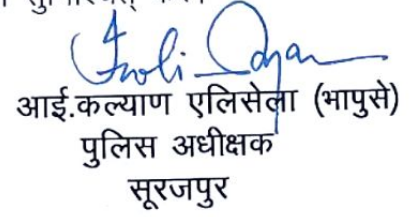 आई.कल्याण एलिसेला (भापुसे)
पुलिस अधीक्षक
सूरजपुर